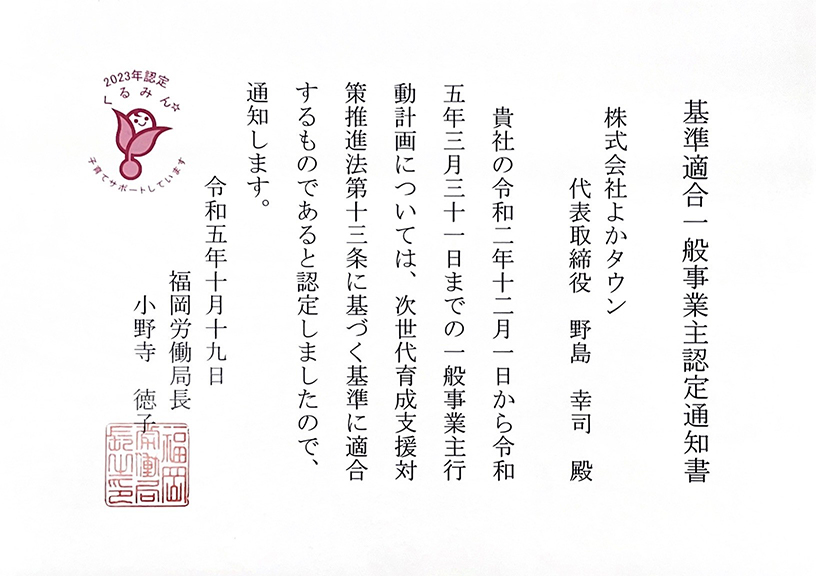 基準適合一般事業主認定通知書
株式会社よかタウン
代表取締役　野島　幸司　殿
貴社の令和二年十二月一日から令和
五年三月三十一日までの一般事業主行
動計画については、次世代育成支援対
策推進法第十三条に基づく基準に適合
するものであると認定しましたので、
通知します。
令和五年十月十九日
福岡労働局長
小野寺　徳子
福岡
労働局
長之印
2023年認定
くるみん☆
子育てサポートしています